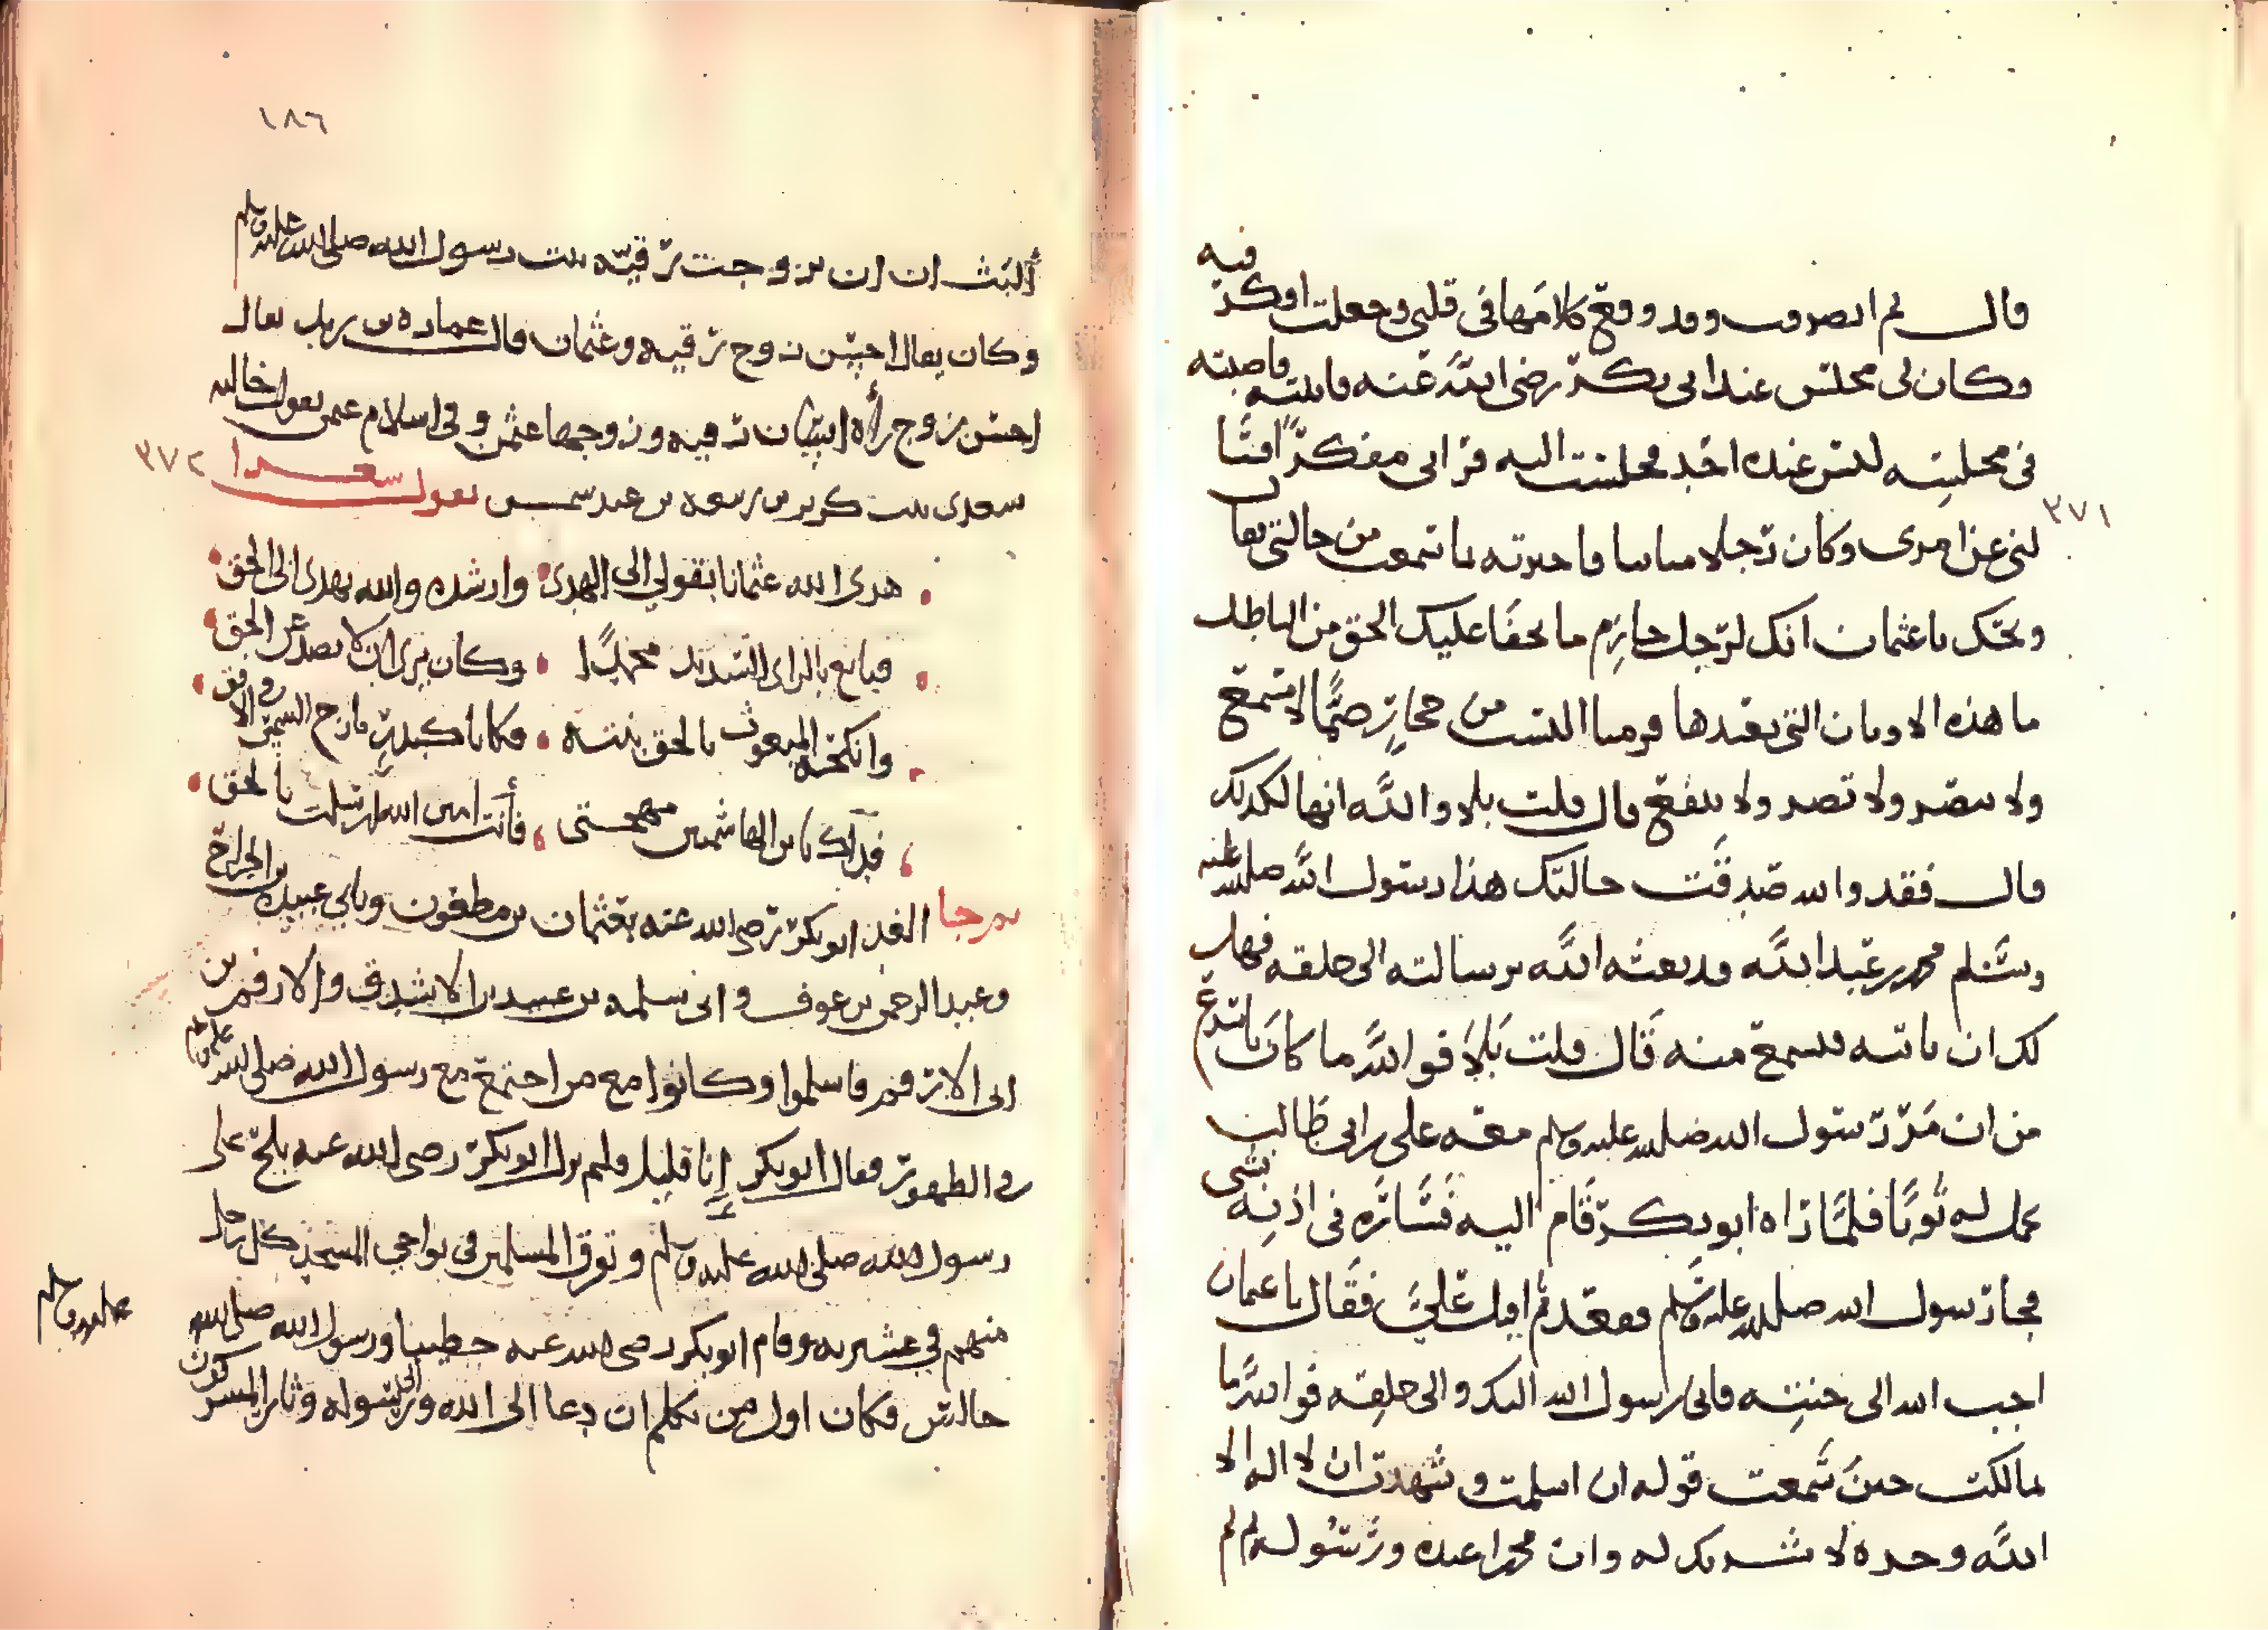 قال ثم انصرفت وقد وقع كلامها في قلبي وجعلت افكر فيه
وكان لي مجلس عند ابي بكر رضي الله عنه فاتيته فاصبته
في مجلسه ليس عنده احد فجلست اليه فراني مفكرا فسا
٣٧١
لني عن امري وكان رجلا متانيا فاخبرته بما سمعت من خالتي فقال
ويحك يا عثمان انك لرجل حازم ما يخفا عليك الحق من الباطل
ما هذه الاوثان التي يعبدها قومنا اليست من حجارة صما لا تسمع
ولا تبصر ولا تضر ولا تنفع قال قلت بلا والله انها لكذلك
قال فقد والله صدقت خالتك هذا رسول الله صلى الله عليه
وسلم محمد بن عبد الله قد بعثه الله برسالته الى خلقه فهل
لك ان تاتيه فتسمع منه قال قلت بلا فوالله ما كان باسرع
من ان مر رسول الله صلى الله عليه وسلم معه علي بن ابي طالب
يحمل له ثوبا فلما راه ابو بكر قام اليه فساره في اذنه بشي
فجا رسول الله صلى الله عليه وسلم فقعد ثم اقبل علي فقال يا عثمان
اجب الله الى جنته فاني رسول الله اليك والى خلقه فوالله ما
تمالكت حين سمعت قوله ان اسلمت وشهدت ان لا اله الا
الله وحده لا شريك له وان محمدا عبده ورسوله ثم لم
١٨٦
ألبث ان ان تزوجت رقيه بنت رسول الله صلى الله عليه وسلم
وكان يقال احسن زوج رقيه وعثمان قال عماره بن زيد يقال
احسن زوج رأه انسان رقيه وزوجها عثمن وفي اسلام عثمن تقول خالته
سعدى بنت كريز بن ربيعه بن عبد شمس تقول سعدا
٣٧٢
هدى الله عثمانا بقولي الى الهدى وارشده والله يهدي الى الحق
فبايع بالراي السديد محمدا وكان يرى ان لا يصد عن الحق
وانكحه المبعوث بالحق بنته فكانا كبدر مازج الشمس في الافق
فداك يا بن الهاشمين مهجتي فأنت امين الله ارسلت بالحق
ثم جا الغد ابو بكر رضي الله عنه بعثمان بن مظعون وبابي عبيده بن الجراح
وعبد الرحمن بن عوف وابي سلمه بن عبد الاسد والارقم بن
ابي الارقم فاسلموا وكانوا مع من اجتمع مع رسول الله صلى الله عليه وسلم
في الظهور فقال ابو بكر إنا قليل فلم يزل ابو بكر رضي الله عنه يلح على
رسول الله صلى الله عليه وسلم وتفرق المسلمين في نواحي المسجد كل رجل
منهم في عشيرته وقام ابو بكر رضي الله عنه خطيبا ورسول الله صلى الله
عليه وسلم
جالس فكان اول من تكلم ان دعا الى الله والى رسوله وثار المشركون